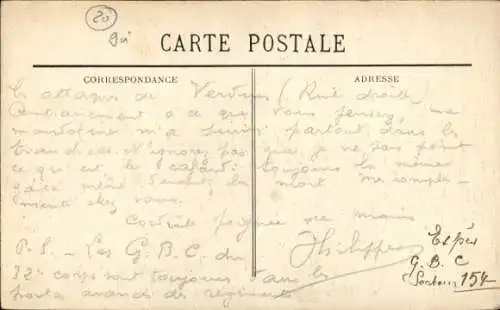 20
CARTE POSTALE
CORRESPONDANCE
ADRESSE
les attaques de Verdun (Rive droite)
Contrairement à ce que vous pensez, ma
mandoline m'a suivi partout dans les
tranchées. N'ignorez pas que je ne sais point
ce qu'est le cafard: toujours la même
gaîté même devant la mort. Mes compli-
ments chez vous.
Cordiale poignée de mains
P.S. - Les G.B.C. du
12e corps sont toujours dans les
postes avancés des régiments
G.B.C
Secteur 154